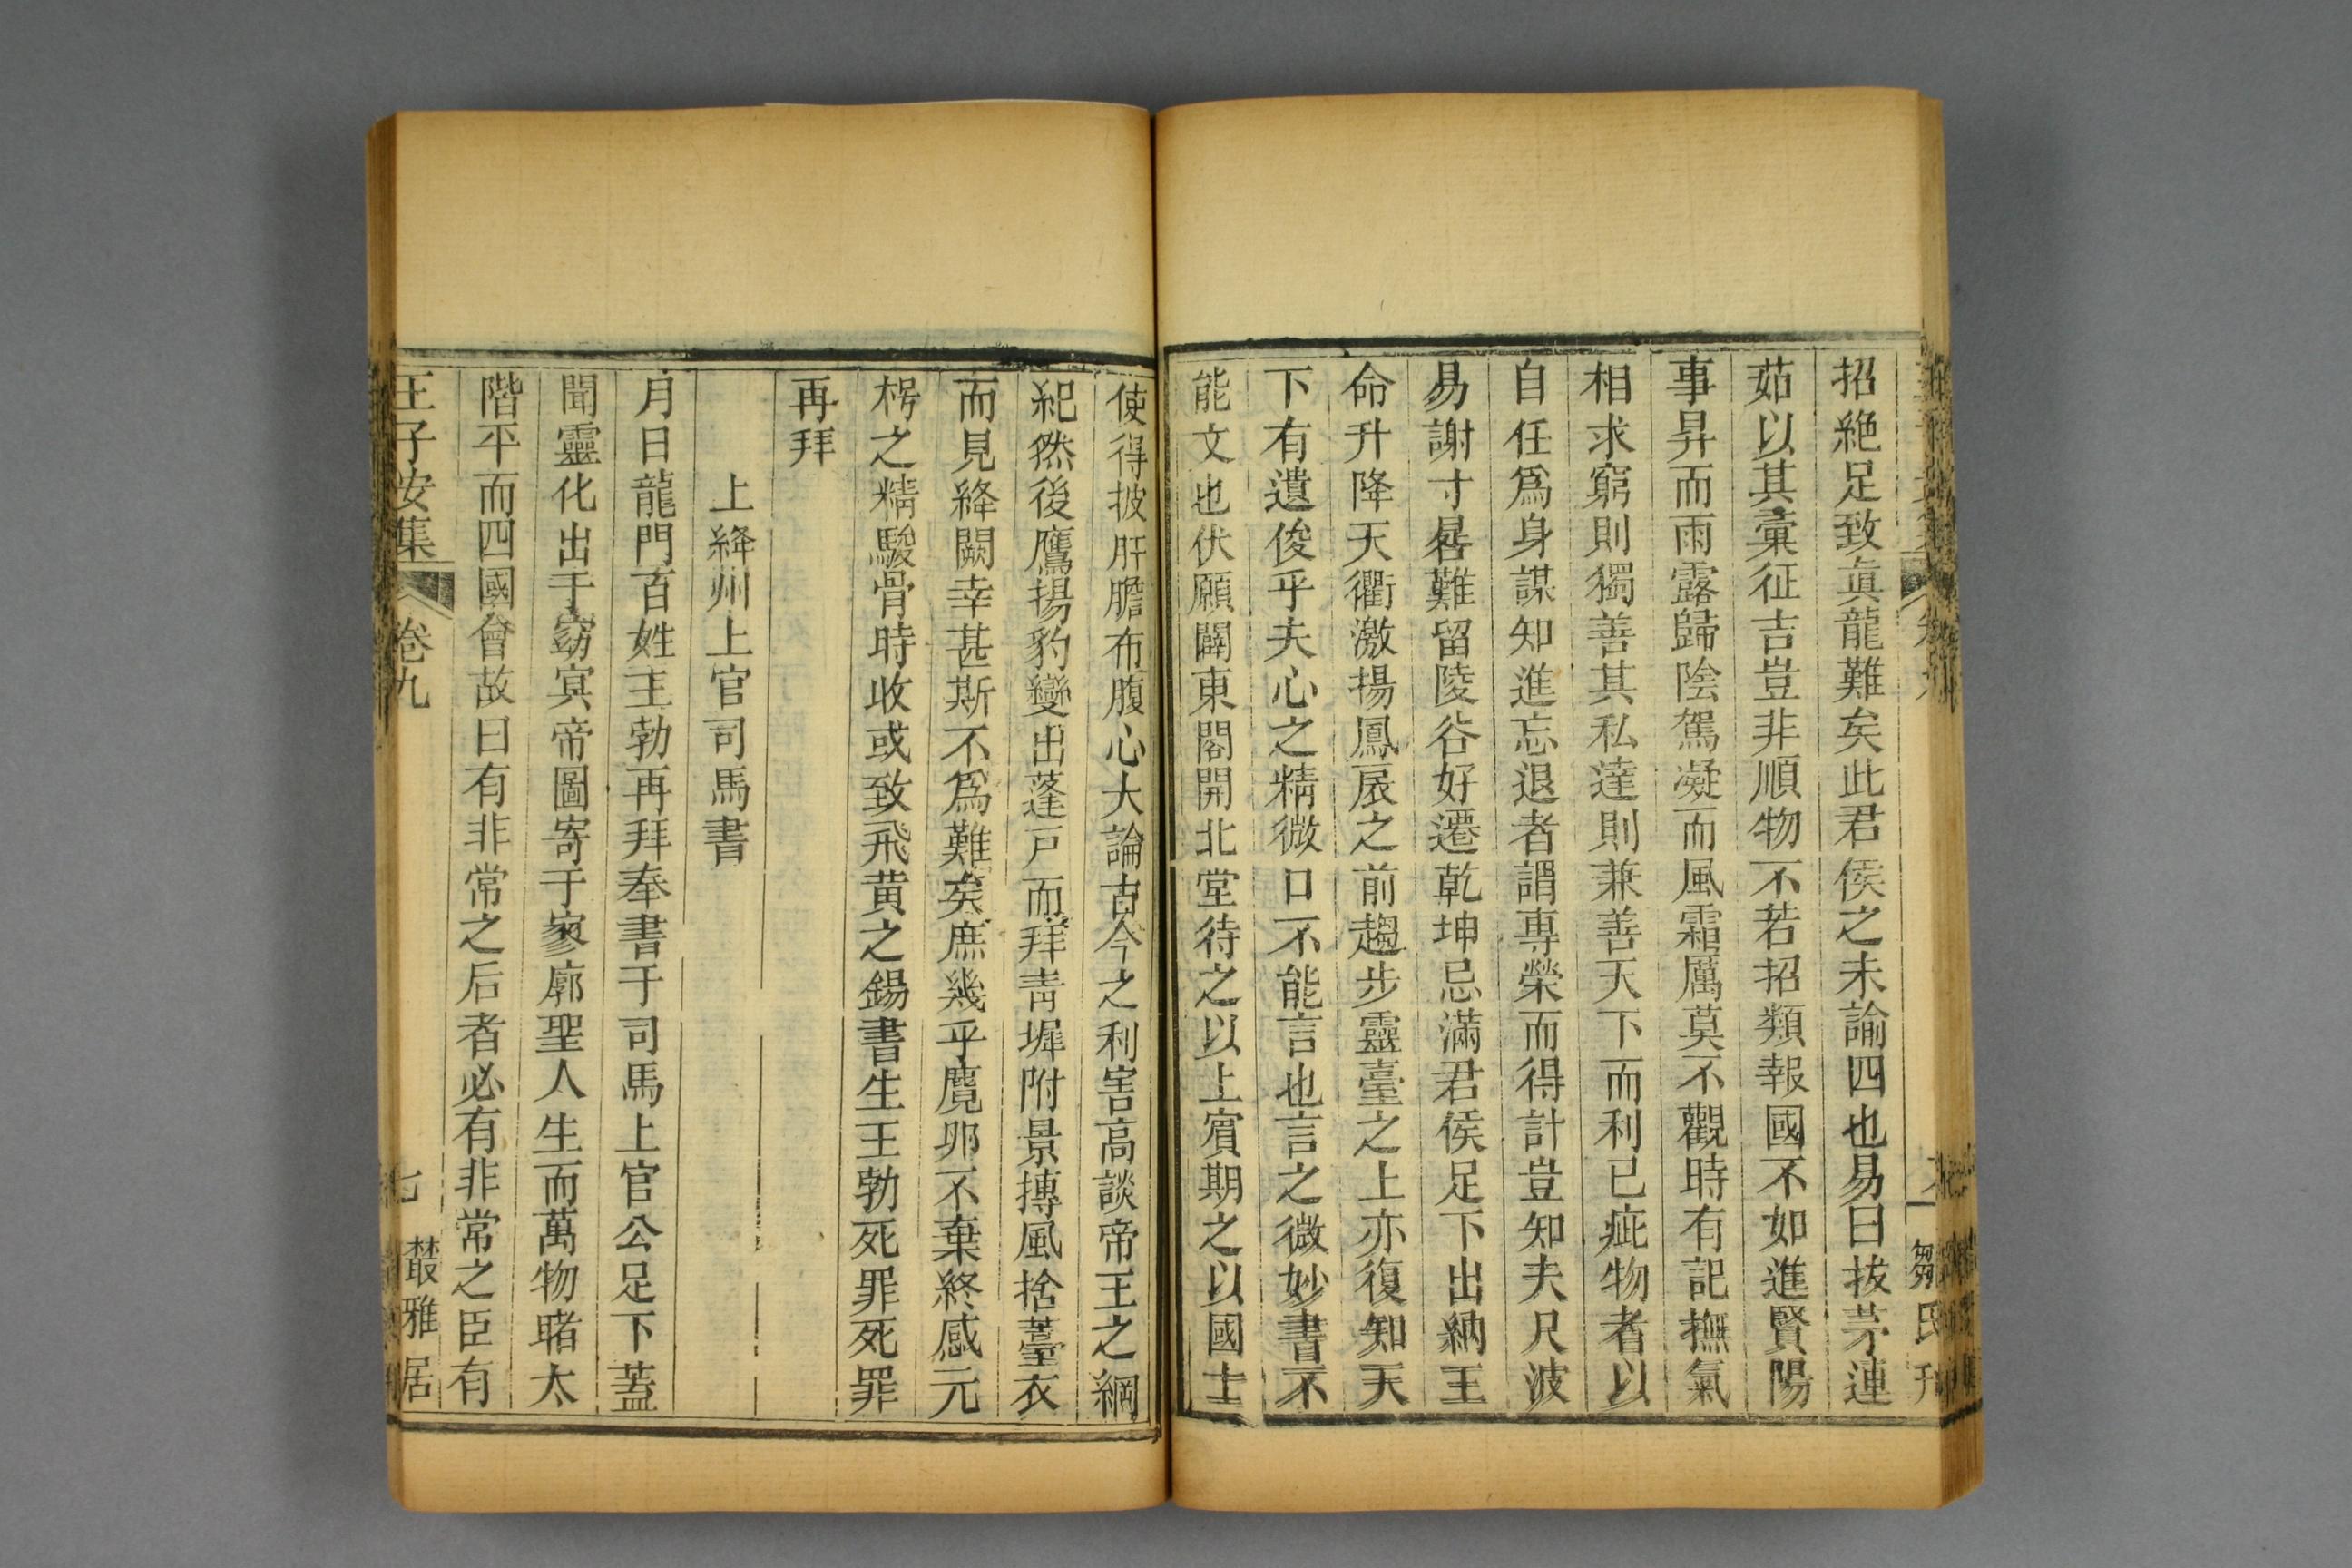 招絶足致眞龍難矣此君侯之未諭四也易曰拔茅連
茹以其彚征吉豈非順物不若招類報國不如進賢陽
事昇而雨露歸陰駕凝而風霜厲莫不觀時有記撫氣
相求窮則獨善其私達則兼善天下而利已疵物者以
自任爲身謀知進忘退者謂專榮而得計豈知夫尺波
易謝寸晷難留陵谷好遷乾坤忌滿君侯足下出納王
命升降天衢激揚鳳扆之前趨步靈臺之上亦復知天
下有遺俊乎夫心之精微口不能言也言之微妙書不
能文也伏願闢東閣開北堂待之以上賓期之以國士
使得披肝膽布腹心大論古今之利害高談帝王之綱
紀然後鷹揚豹變出蓬戸而拜靑墀附景搏風捨薹衣
而見絳闕幸甚斯不爲難矣庶幾乎麑卵不棄終感元
枵之精駿骨時收或致飛黄之錫書生王勃死罪死罪
再拜
上絳州上官司馬書
月日龍門百姓王勃再拜奉書于司馬上官公足下蓋
聞靈化出于窈冥帝圖寄于寥廓聖人生而萬物睹太
階平而四國會故曰有非常之后者必有非常之臣有
王子安集
卷九
七
藂雅居
鄒氏刊